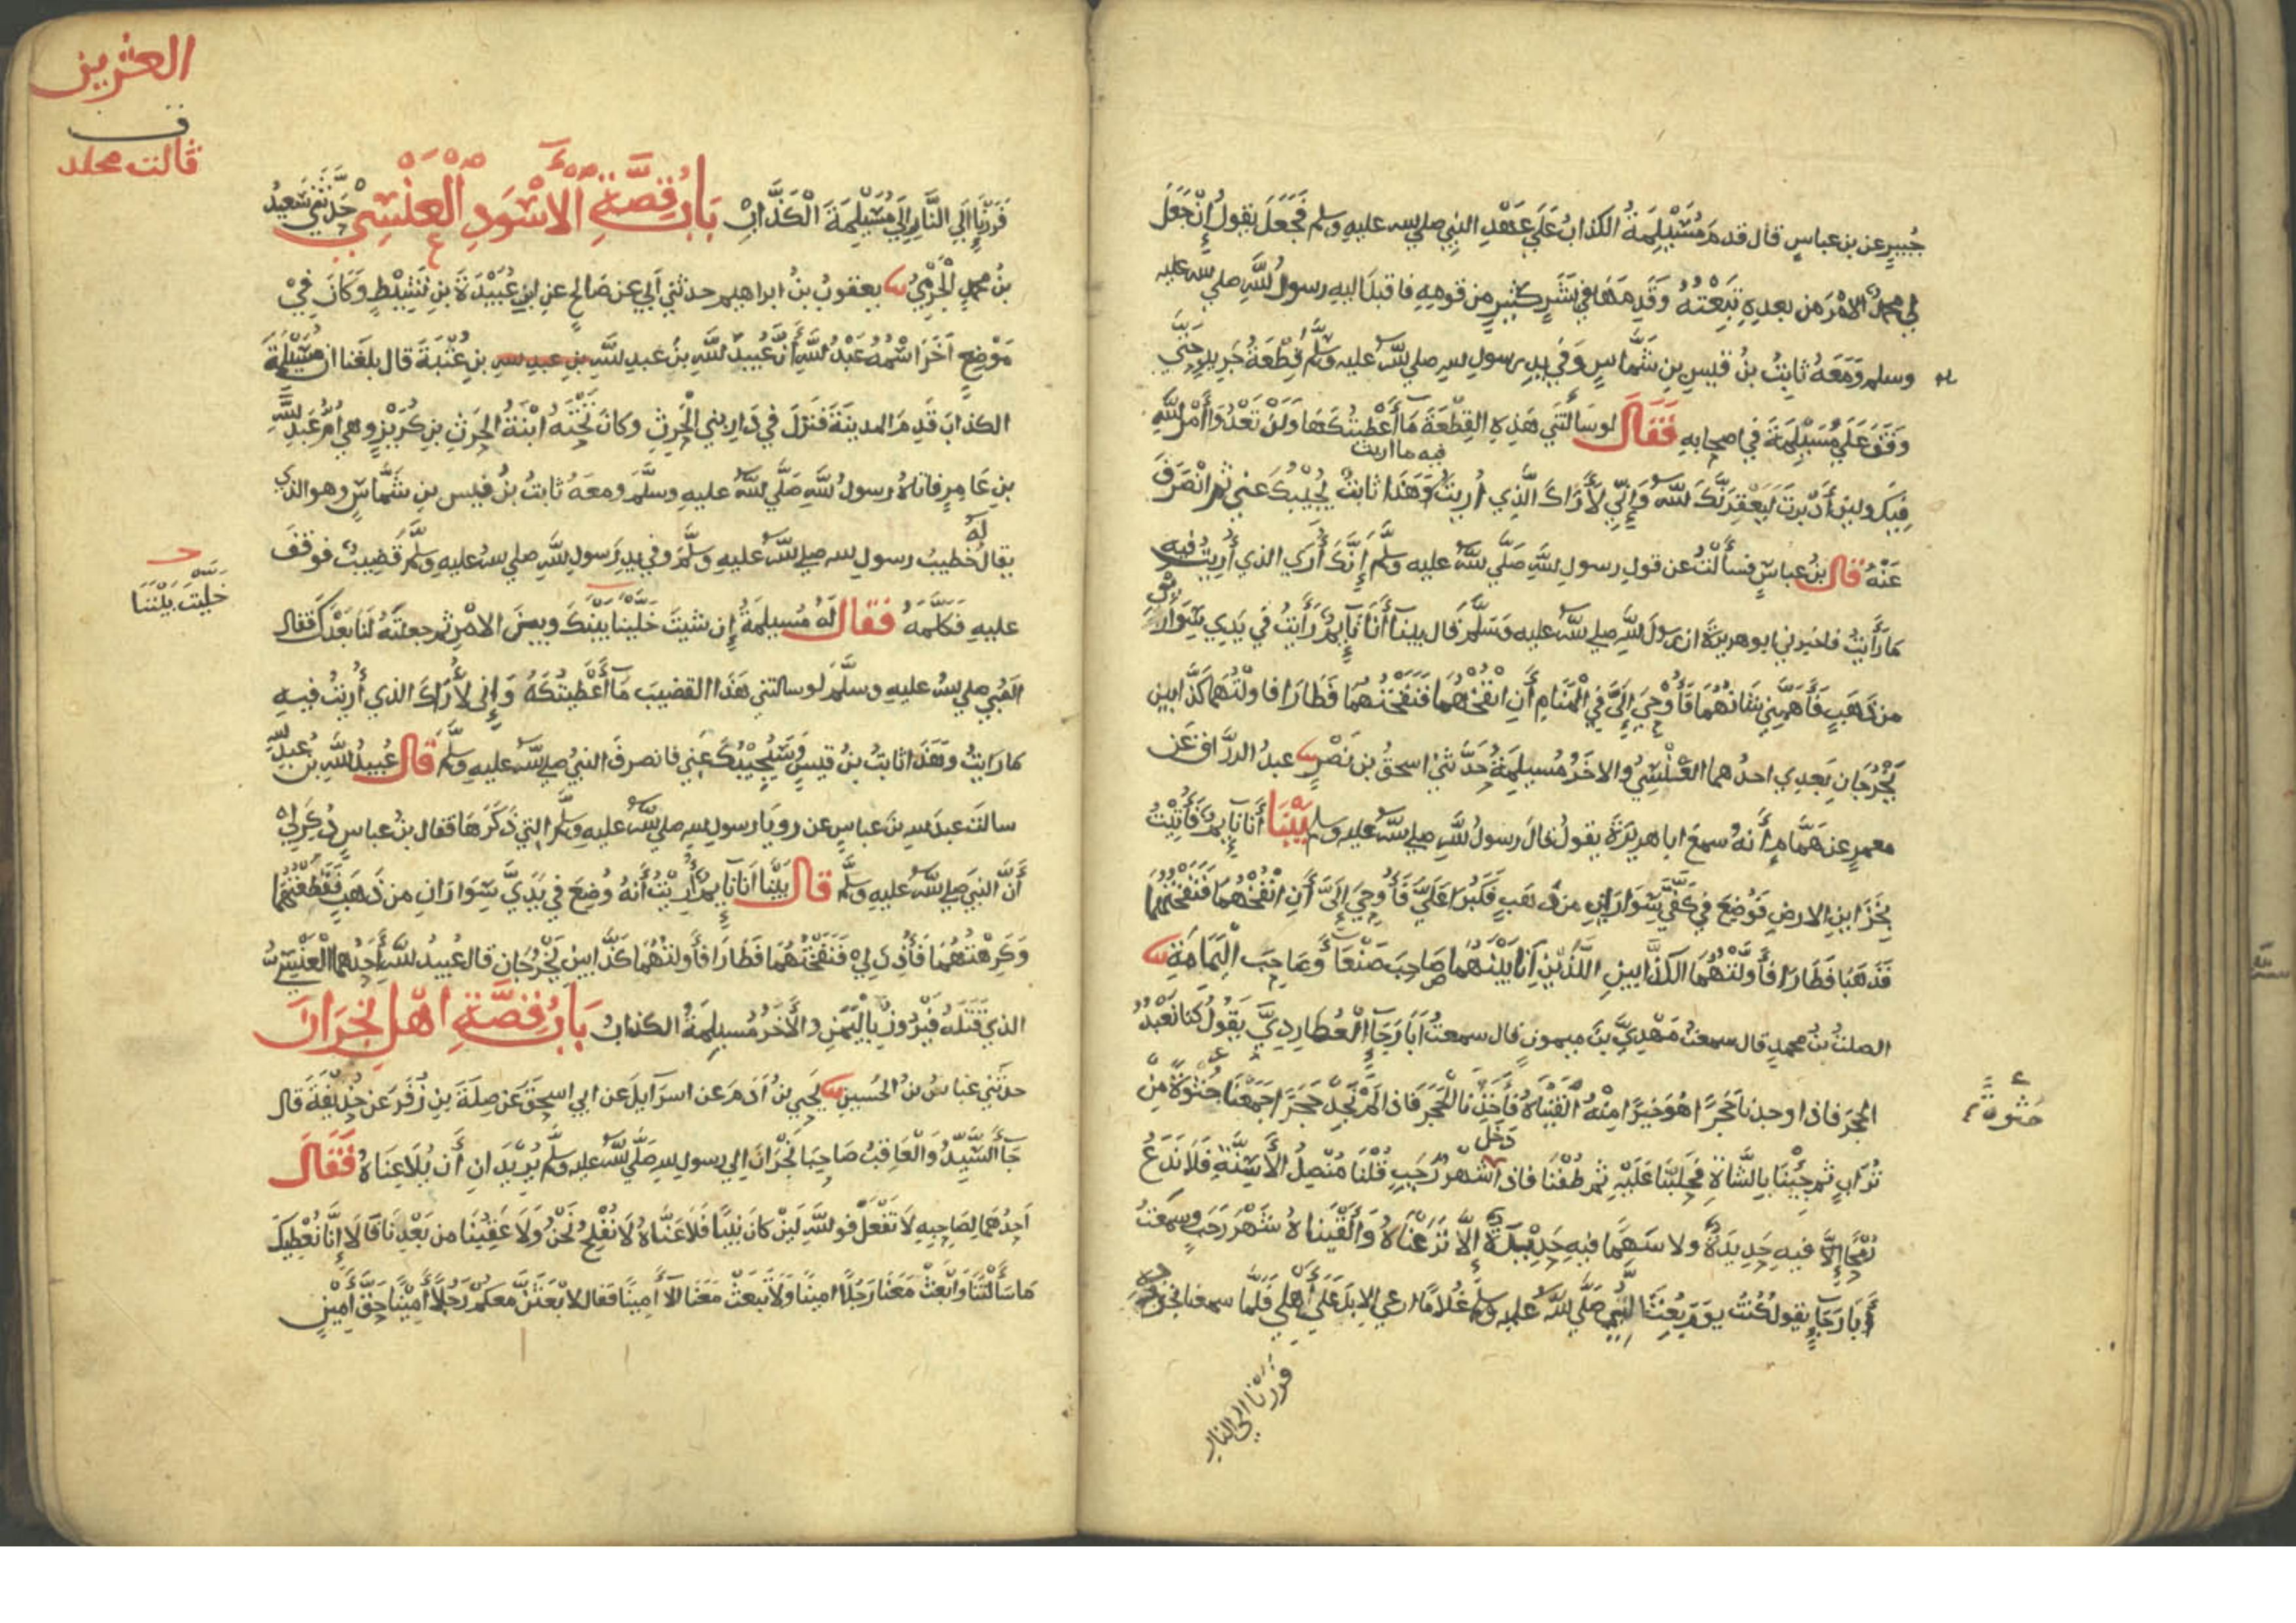 جُبيرٍ عن بن عباسٍ قال قدمَ مُسَيْلِمَةُ الكذابُ عَلَي عَهْدِ النبِي صلي الله عليهِ وسلم فَجَعَلَ يقولُ إِنْ جَعَلَ
لي محمدٌ الامْرَ من بعدِهِ تَبِعْتُهُ وَقَدِمَهَا في بَشَرٍ كثيرٍ من قومِهِ فاقبلَ اليهِ رسولُ اللهِ صلي الله عليه
وسلم وَمَعَهُ ثابِتُ بنُ قيسِ بنِ شَمَّاسٍ وَفي يدِ رسولِ اللهِ صلي الله عليه وسلم قِطْعَةُ جَرِيدٍ حَتَّي
وَقَفَ عَلَي مُسَيْلِمَةَ في اصحابِهِ فَقَالَ لو سَالتَنِي هَذِهِ القِطْعَةَ مَا أَعْطيتُكَهَا وَلَنْ تَعْدُوَا أَمْرَ اللهِ
فيه ما اريت
فِيكَ ولين أَدْبرتَ لَيَعْقِرَنَّكَ اللهُ وَإِنِّي لَأَرَاكَ الَّذِي أُرِيتُ وَهَذَا ثابتٌ يُجيبُكَ عني ثم انْصَرَفَ
عَنْهُ قال بنُ عباسٍ فسأَلْتُ عن قولِ رسولِ اللهِ صَلَّي اللهُ عليه وسلم إِنَّكَ أُرَي الذي أُرِيتُ فيهِ
مَا رَأَيْتُ فاخبرني ابو هريرةَ ان رسولَ اللهِ صلي الله عليه وَسَلَّمَ قال بينا أَنَا نَايمٌ رَأَيتُ في يَدِي سِوَارَيْنِ
من ذَهَبٍ فَأَهَمَّنِي شَانُهُمَا فَأُوْحِيَ إِلَيَّ فِي الْمَنَامِ أَنِ انْفُخْهُمَا فَنَفَخْتُهُمَا فَطَارَا فاولْتُهُمَا كَذَّابينِ
يَخْرُجَانِ بَعدِي احدُهما العَنْسِيُّ والاخَرُ مُسيلِمَةُ حَدَّثَنِي اسحقُ بنُ نَصْرٍ عبدُ الرزَّاقِ عَن
معمرٍ عن هَمَّامٍ أَنهُ سمعَ ابا هريرةَ يقولُ قال رسولُ اللهِ صلي الله عليه وسلم بَيْنَا أَنَا نَايِمٌ فَأُتِيْتُ
بِخَزَاينِ الارضِ فَوُضِعَ فِي كَفَّيَّ سِوَارَانِ من ذهبٍ فَكَبُرَا عَلَيَّ فَأُوحِيَ إِلَيَّ أَنِ انْفُخْهُمَا فَنَفَخْتُهُمَا
فَذَهَبَا فَطَارَا فَأَوَّلْتُهُمَا الكَذَّابينِ اللَّذَيْنِ أَنَا بَيْنَهُمَا صَاحِبَ صَنْعَآ وَصَاحِبَ الْيَمَامَةِ
الصلتُ بنُ محمدٍ قال سمعتُ مَهْدِيَّ بنَ ميمونٍ قال سمعتُ أَبَا رَجَآءٍ الْعُطارِدِيَّ يَقُولُ كنا نَعْبُدُ
الحجرَ فاذا وجدنا حَجَرًا هُوَ خيرًا مِنْهُ الْقَيْنَاهُ فَأَخَذْنَا الْحَجَرَ فاذا لَمْ نَجِدْ حَجَرًا جَمَعْنَا حُثْوَةً مِنْ
حثوة
دَخَلَ
تُرَابٍ ثم جِيْنَا بِالشَّاةِ فَحَلَبْنَا عَلَيْهِ ثم طُفْنَا فاذا شهرُ رَجَبٍ قُلْنَا مُنْصِلُ الأَسِنَّةِ فَلَا نَدَعُ
رُمْحًا إِلَّا فيهِ حَدِيدَةٌ ولا سَهْمًا فيهِ حَدِيْدَةٌ إِلَّا نَزَعْنَاهُ وَأَلْقَيْنَاهُ شَهْرَ رَجَبٍ وسمعتُ
أَبَا رَجَآءٍ يقولُ كُنْتُ يومَ بُعِثَ النَّبِيُّ صَلَّي اللهُ عليه وسلم غُلَامًا ارعي الابِلَ عَلَي أَهْلِي فَلَمَّا سمعنا بخروجِهِ
فررنا الي النار
العشرين
ف
ثالث مجلد
فَرَرْنَا إِلَي النَّارِ إِلَي مُسَيْلِمَةَ الْكَذَّابِ بَابُ قِصَّةِ الْاَسْوَدِ الْعَنْسِي حَدَّثَنِي سَعِيدُ
بنُ محمدٍ الْجَرْمِيُّ يعقوبُ بنُ ابراهيم حدثني أبي عن صَالحٍ عن ابنِ عُبَيْدَةَ بنِ نَشِيْطٍ وَكَانَ فِيْ
مَوْضِعٍ آخَرَ اسْمُهُ عَبْدُ اللَّهِ أَنَّ عُبيدَ اللهِ بنَ عبدِ اللهِ بنِ عبدِ اللهِ بنِ عُتْبَةَ قال بلغَنا ان مُسَيْلِمَةَ
الكذابَ قَدِمَ المدينَةَ فَنَزَلَ في دَارِ بني الْحَرِثِ وكانَ تَحْتَهُ ابْنَةُ الحَرِثِ بنِ كُرَيْزٍ وهي أُمُّ عَبدِ اللهِ
بنِ عَامِرٍ فاتاهُ رسولُ اللهِ صَلَّي اللهُ عليهِ وسلَّمَ ومعَهُ ثابتُ بنُ قيسِ بنِ شَمَّاسٍ وهو الذي
يقالُ لَهُ خَطِيبُ رسولِ الله صلي الله عليهِ وَسَلَّمَ وفي يدِ رسولِ اللهِ صلي الله عليهِ وسلم قَضِيبٌ فوقفَ
خليتَ بيننا
عليهِ فَكَلَّمَهُ فَقَالَ لَهُ مُسيلِمَةُ إِن شيتَ خَلَّيْنَا بَيْنَكَ وبينَ الامْرِ ثم جعلتَهُ لَنَا بَعْدَكَ فَقال
النبي صلي الله عليهِ وسلَّمَ لو سالتني هَذَا القضيبَ مَآ أَعْطَيْتُكَهُ وَإِني لَأُرَاكَ الذي أُريتُ فيهِ
مَا رَايتُ وَهَذَا ثابتُ بنُ قيسٍ وَسَيُجِيْبُكَ عَنِي فانصرفَ النبيُ صلي الله عليهِ وسلم قال عُبيدُ اللهِ بن عبدِ الله
سالتُ عبدَ اللهِ بنَ عباسٍ عن رويا رسولِ اللهِ صلي الله عليه وسلم التِي ذَكَرَهَا فقال بنُ عباسٍ ذُكِرَ لِيْ
أَنَّ النبيَ صلي الله عليهِ وسلم قَالَ بَيْنَا أَنَا نَايمٌ أُرِيْتُ أَنهُ وُضِعَ في يَدَيَّ سِوَارَانِ من ذَهَبٍ فَفَظِعْتُهُمَا
وَكَرِهْتُهُمَا فَأُذِنَ لِيْ فَنَفَخْتُهُمَا فَطَارَا فَأَوَّلْتُهُمَا كَذَّابينِ يَخْرُجَانِ قال عُبيدُ اللهِ أَحَدُهُمَا الْعَنْسِيُّ
الذِيْ قَتَلَهُ فَيْرُوزُ بِالْيَمَنِ والْأَخَرُ مُسَيلِمَةُ الكذابُ بَابُ قِصَّةِ اهْلِ نَجْرَانَ
حدثني عباسُ بنُ الحُسينِ يَحْيَي بنُ أَدَمَ عن اسرَآيلَ عن ابي اسحقَ عَن صِلَةَ بنِ زُفَرَ عَن حُذَيْفَةَ قال
جَآ السَّيِّدُ وَالْعَاقِبُ صَاحِبَا نَجْرَانَ إلي رسولِ اللهِ صَلَّي اللهُ عليه وسلم يُرِيْدَانِ أَن يُلَاعِنَاهُ فَقَالَ
أَحَدُهُمَا لِصَاحِبِهِ لَا تَفْعَلْ فواللهِ لَيِنْ كانَ نبيًا فَلَاعَنَّاهُ لَا نُفْلِحُ نَحْنُ وَلَا عَقِبُنَا من بَعْدِنَا قَالَا إِنَّا نُعْطِيكَ
مَا سَأَلْتَنَا وَابْعَثْ مَعَنَا رَجُلًا امِينًا وَلَا تَبعَثْ مَعَنَا الَّا أَمِينًا فقال لابْعَثَنَّ مَعَكُمْ رَجُلًا أَمِيْنًا حَقَّ أَمِيْنٍ